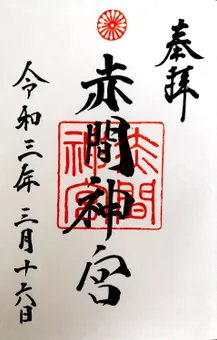 奉拝
赤間神宮
赤間神宮
令和三年 三月十六日